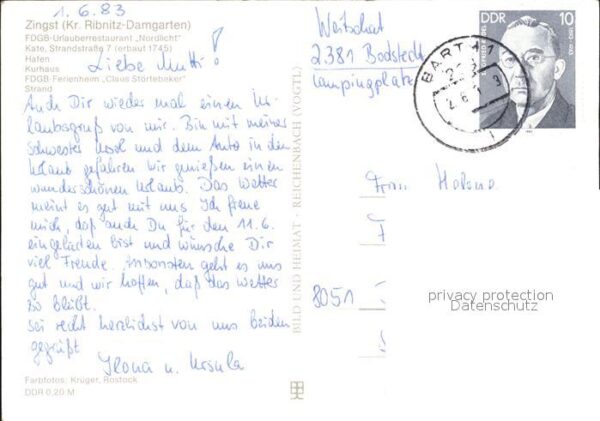 1.6.83
Zingst (Kr. Ribnitz-Damgarten)
FDGB-Urlauberrestaurant „Nordlicht"
Kate, Strandstraße 7 (erbaut 1745)
Hafen
Kurhaus
FDGB-Ferienheim „Claus Störtebeker"
Strand
Liebe Mutti!
Auch Dir wieder mal einen Ur-
laubsgruß von mir. Bin mit meiner
Schwester hoch und dem Auto in den
Urlaub gefahren wir genießen einen
wunderschönen Urlaub. Das Wetter
meint es gut mit uns Ich freue
mich, daß auch Du für den 11.6.
eingeladen bist und wünsche Dir
viel Freude. Ansonsten geht es uns
gut und wir hoffen, daß das Wetter
so bleibt.
Sei recht herzlichst von uns beiden
gegrüßt
Ilona u. Ursula
Farbfotos: Krüger, Rostock
DDR 0,20 M
BILD UND HEIMAT · REICHENBACH (VOGTL)
2381 Bodstedt
Campingplatz
DDR 10
BARTH 1
Frau
8051
privacy protection
Datenschutz